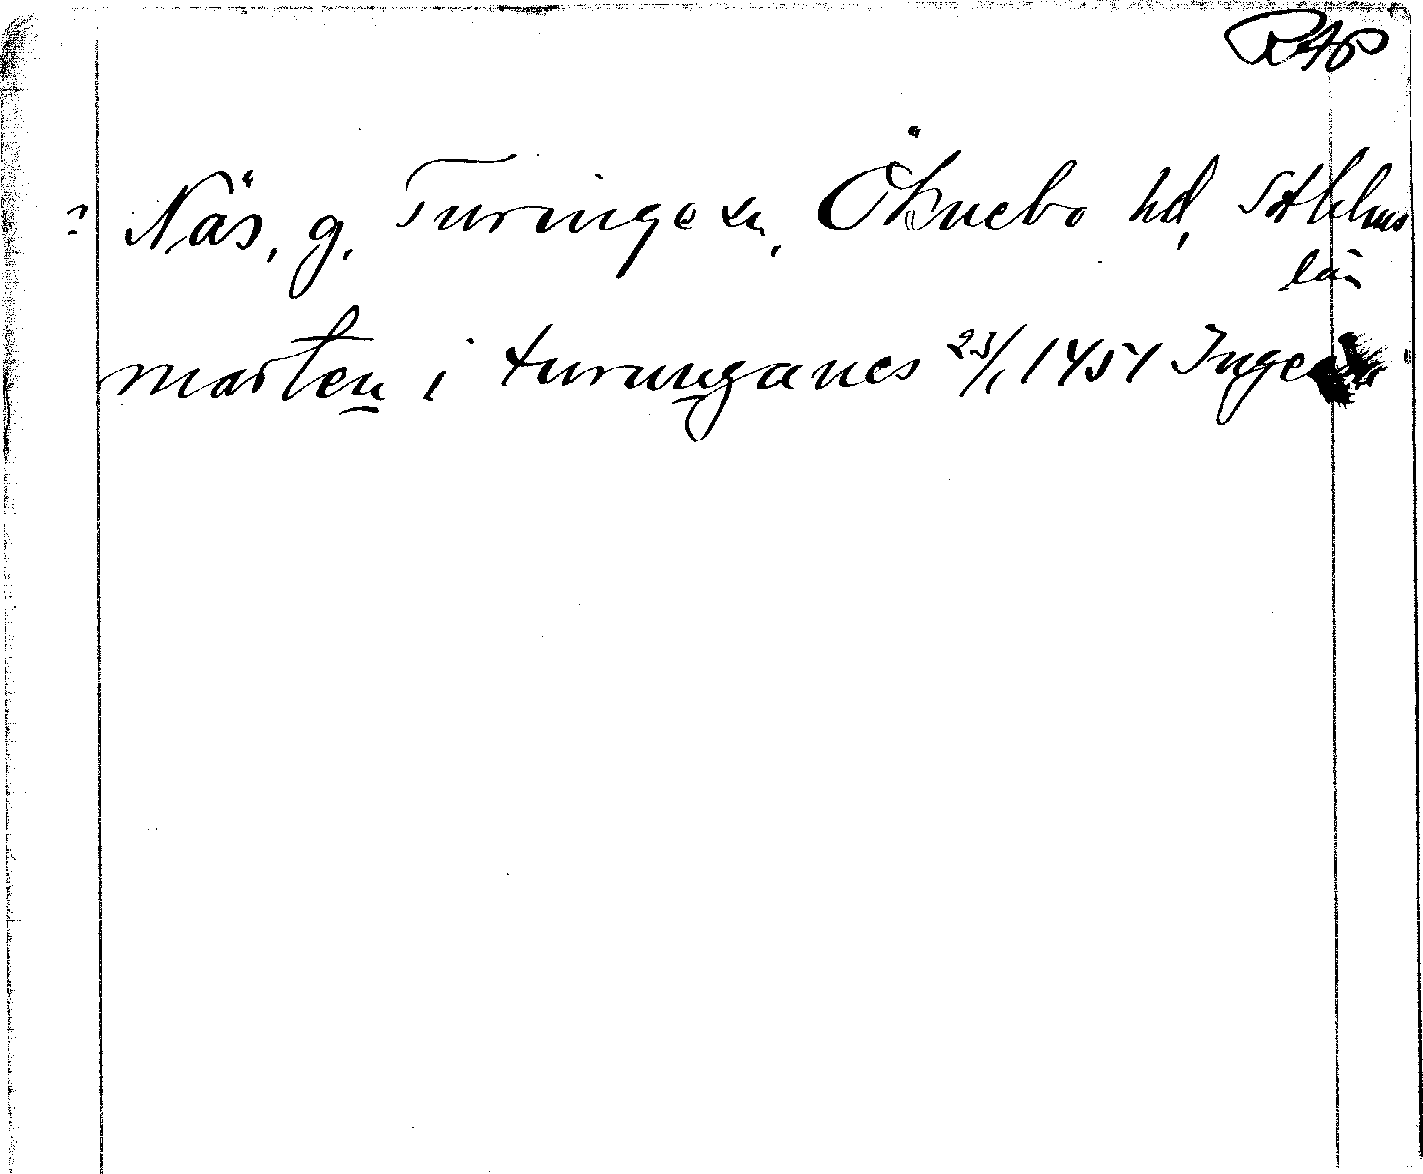 RAp
? Näs, g. Turinge sn, Öknebo hd, Sthlms
län
marten i turunganes 23/1 1451